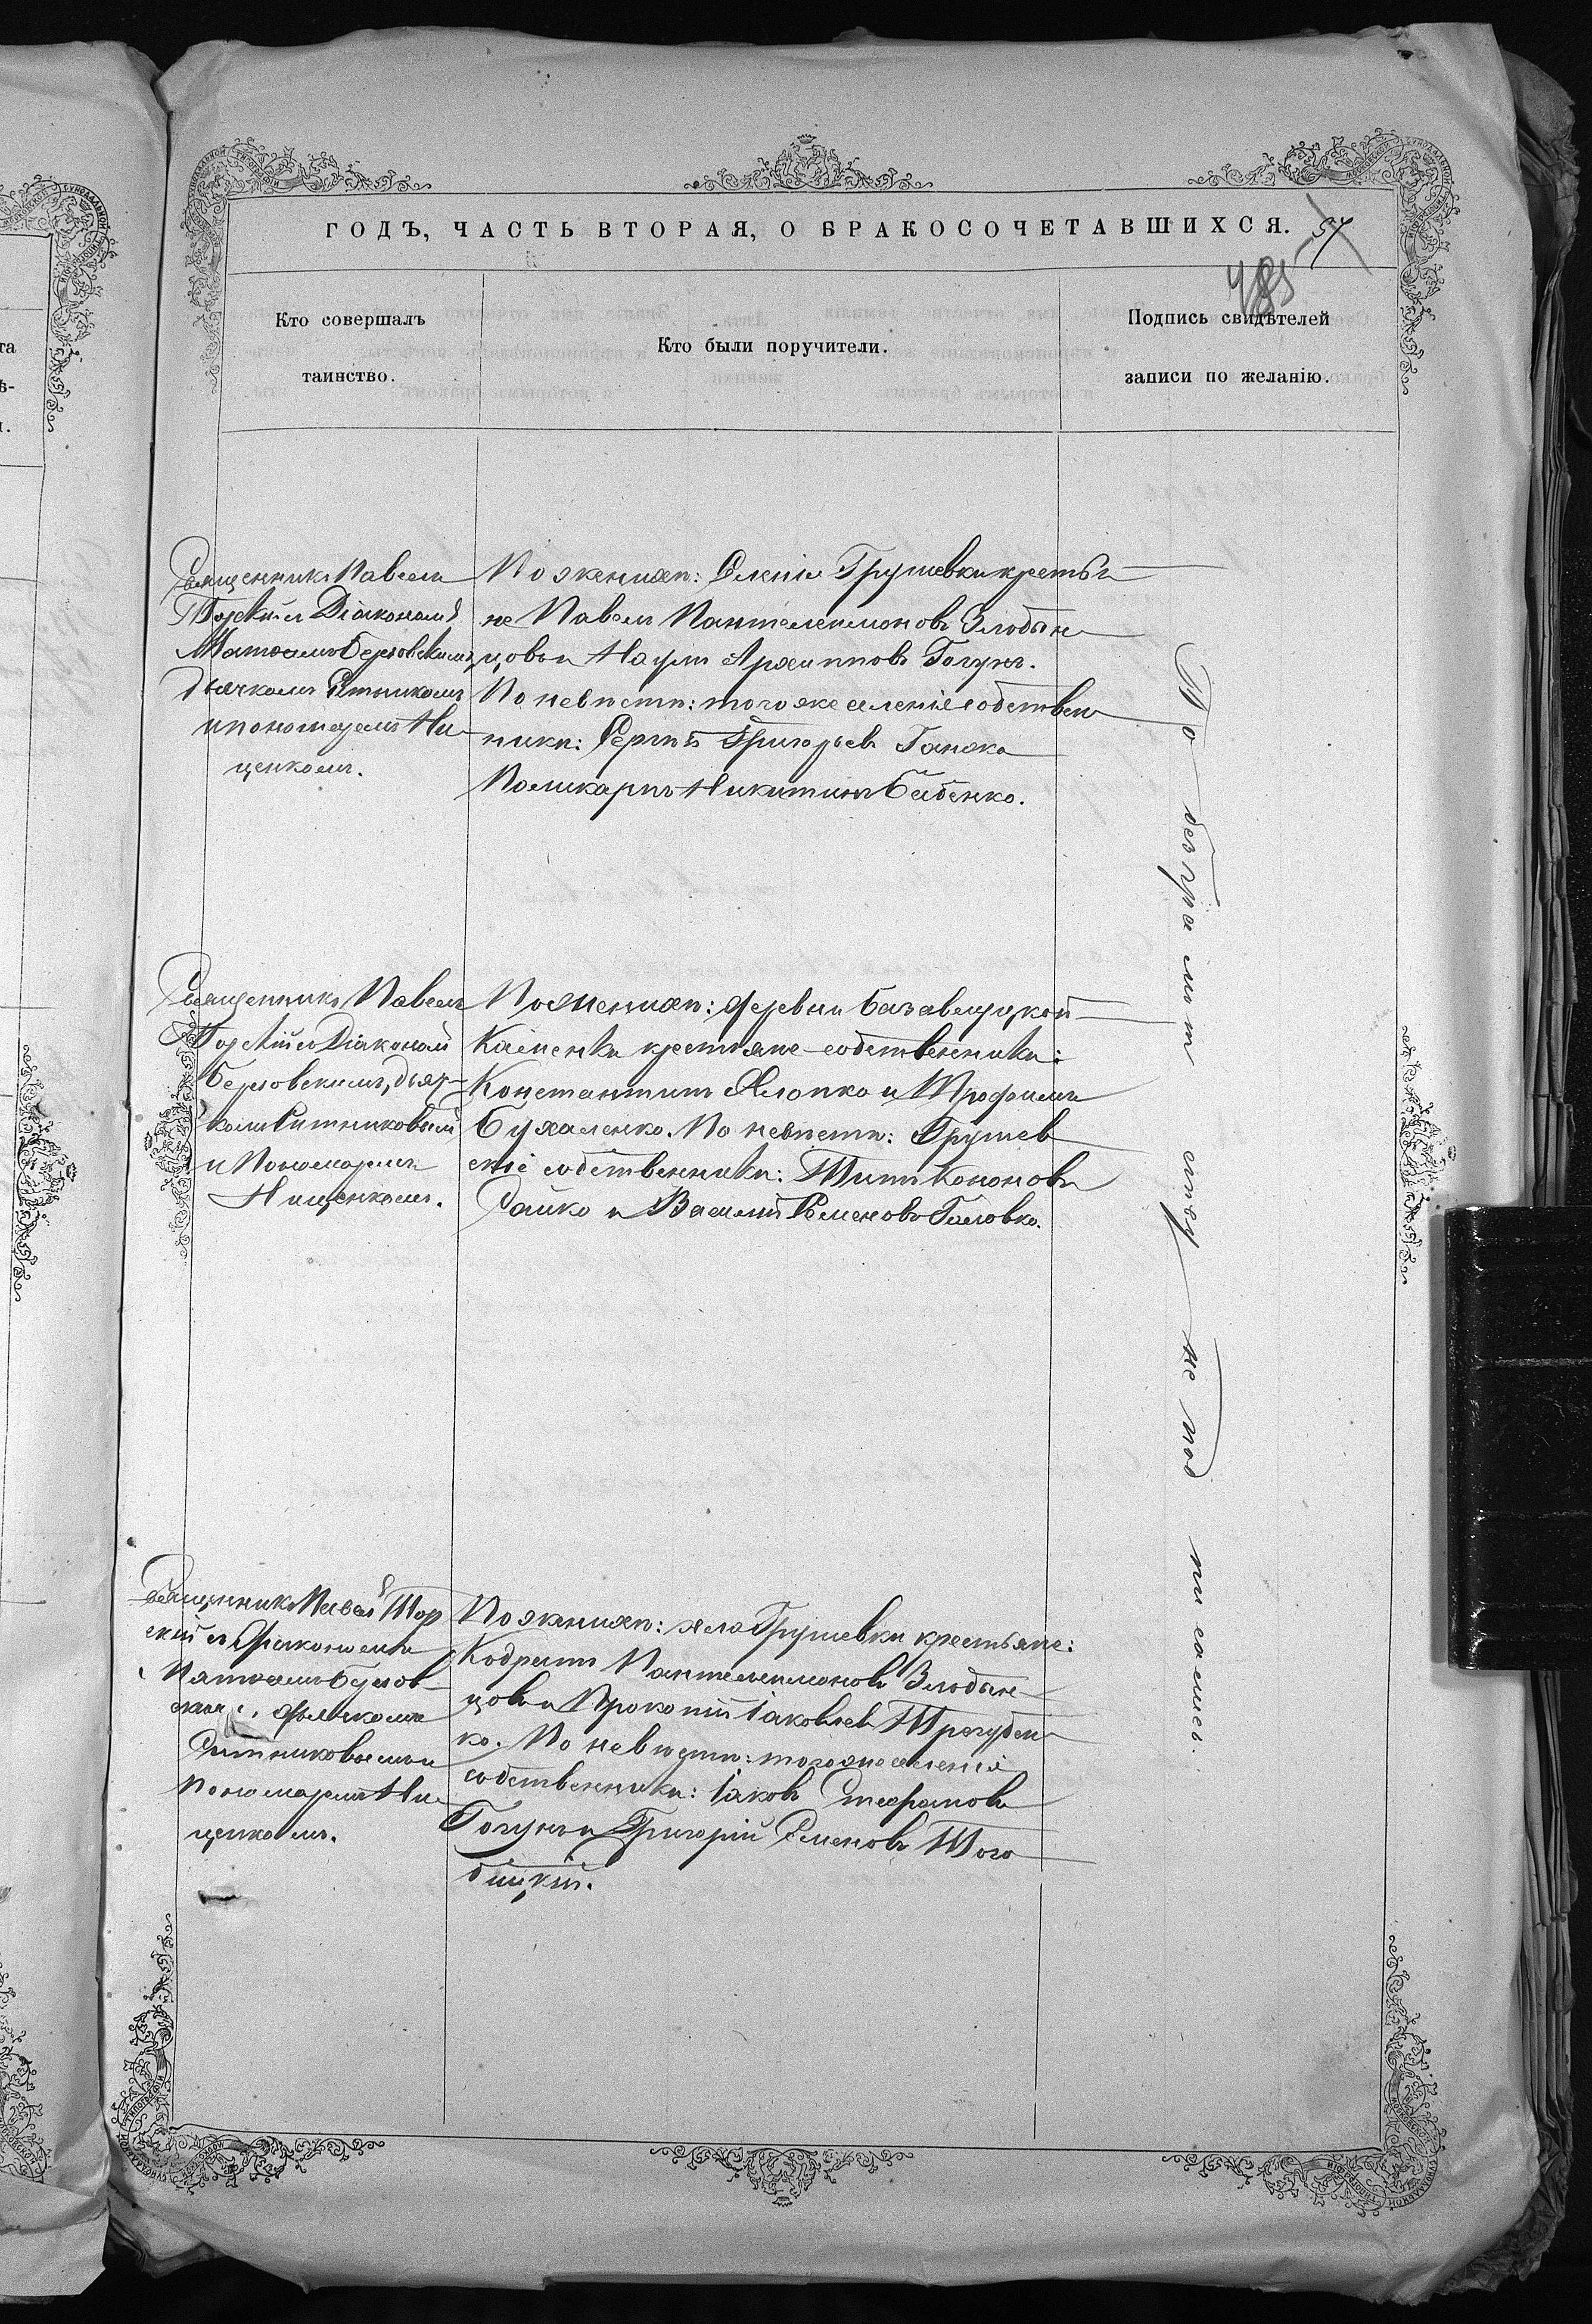 ГОДЪ, ЧАСТЬ ВТОРАЯ, О БРАКОСОЧЕТАВШИХСЯ.
57
485
Кто совершалъ
таинство.
Кто были поручители.
Подпись свидѣтелей
записи по желанію.
Священникъ Павелъ
Торскій съ Діакономъ
Матѳеемъ Березовскимъ,
дьячкомъ Ситникомъ
и пономаремъ Ни
ценкомъ.
По женихѣ: Селенія Грушевки крестья
не Павелъ Пантелеимоновъ Злодѣи
цовъ и Наумъ Архиповъ Гогунъ.
По невѣстѣ: того же селенія собствен
ники: Сергѣй Григорьевъ Ганжа
Поликарпъ Никитинъ Бабенко.
Священникъ Павелъ
Торскій съ Діакономъ
Березовскимъ, дьяч-
комъ Ситниковымъ
и Пономаремъ
Нищенкомъ.
По женихѣ: деревни Базавлуцкой
Каменки крестьяне-собственники:
Константинъ Хлопко и Трофимъ
Бухаленко. По невѣстѣ: Грушев
скіе собственники: Титъ Кононовъ
Сайко и Василій Семеновъ Головко.
Священникъ Павелъ Тор
скій съ Діакономъ
Матѳеемъ Березов
дьячкомъ
Ситниковымъ и
Пономаремъ Ни
щенкомъ.
По женихѣ: села Грушевки крестьяне:
Кодратъ Пантелеимоновъ Злодѣи
цовъ и Прокопій Іаковлевъ Трегубен
ко. По невѣстѣ: того же селенія
собственники: Іаковъ Стефановъ
Гогунъ и Григорій Семеновъ Того
бицкій.
По безграмотству не подписались.